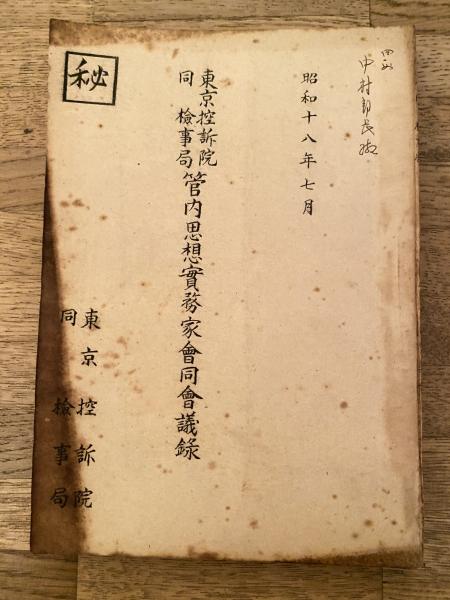 中村部長殿
昭和十八年七月
東京控訴院
同 檢事局
管内思想實務家會同會議錄
秘
東京控訴院
同 檢事局